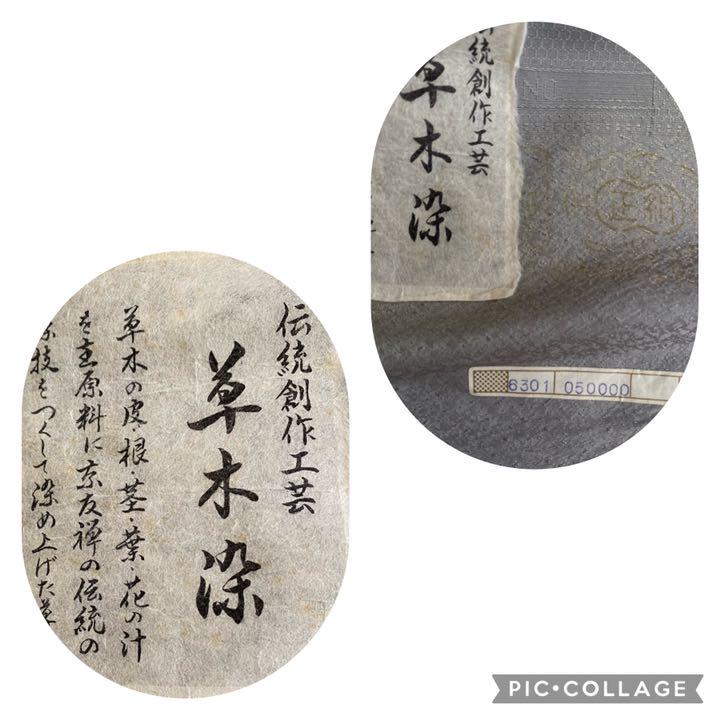 伝統創作工芸
草木染
草木の皮・根・茎・葉・花の汁
を主原料に京友禅の伝統の
技をつくして染め上げた草
統創作工芸
草木染
NO
正絹
6301 050000
PIC•COLLAGE